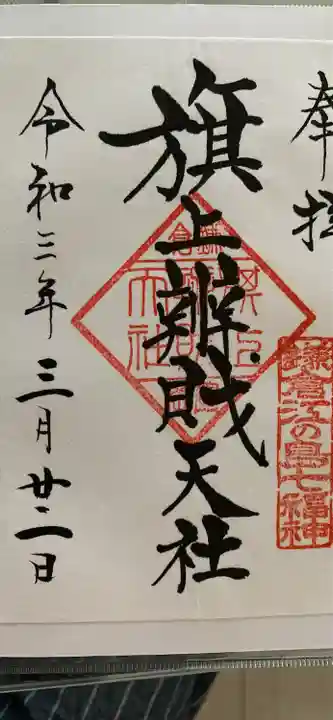 奉拝
鎌倉江の島七福神
旗上辨財天社
令和三年三月廿二日